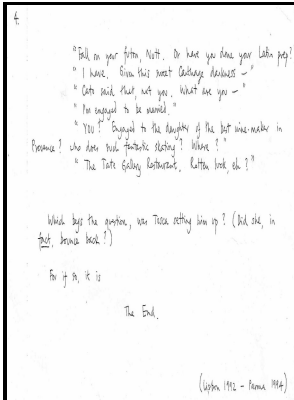 4.
"Fall on your futon, Nutt. Or have you done your Latin prep?
"I have. Given this sweet Carthage darkness –"
"Cato said that, not you. What are you –"
"I'm engaged to be married."
"YOU? Engaged to the daughter of the best wine-maker in
Provence? Who does such fantastic skating? Where?"
"The Tate Gallery Restaurant. Rotten luck, eh?"
Which begs the question, was Tosca setting him up? (Did she, in
fact, bounce back?)
For if so, it is
The End.
(Lisbon 1992 – Parma 1994)